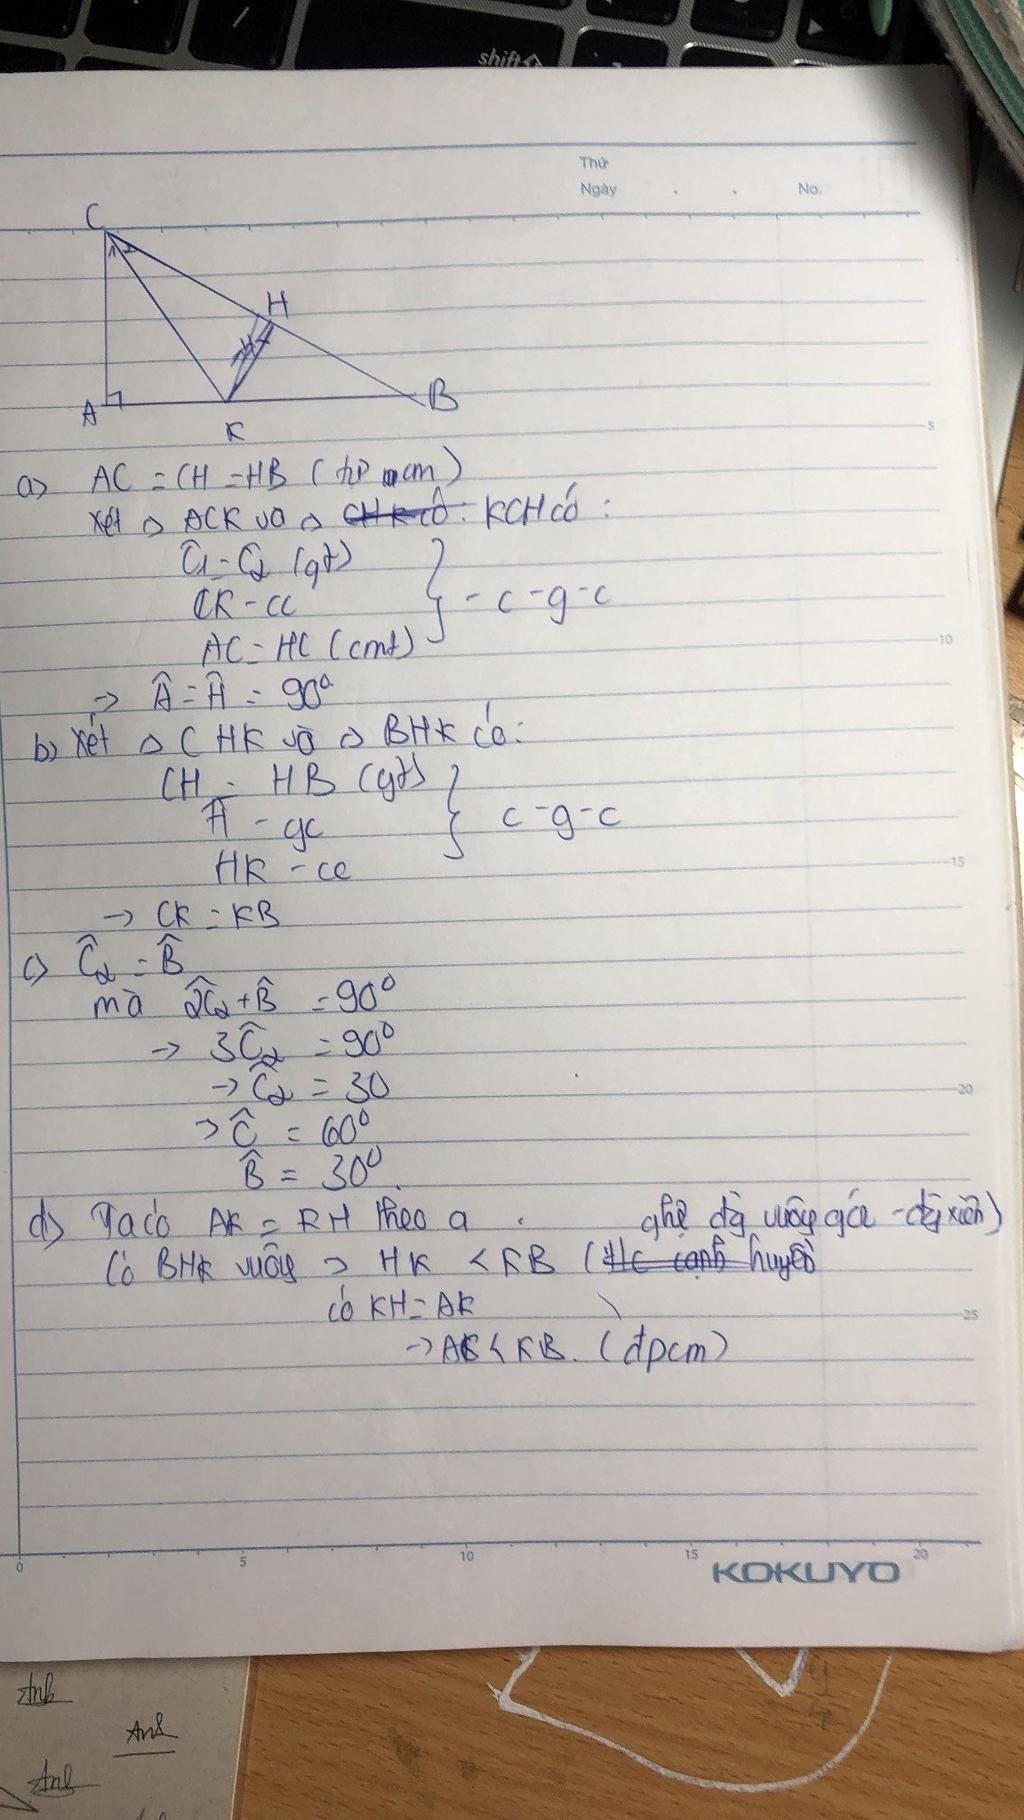 shift
Thứ
Ngày . . No.
C
1 2
H
A
K
B
5
a) AC = CH = HB ( cm)
Xét △ ACK và △ CHK có : KCH có :
Ĉ1 = Ĉ2 (gt)
CK - cc
AC = HC (cmt)
- c - g - c
10
→ Â = Ĥ = 90°
b) Xét △ CHK và △ BHK có:
CH = HB (gt)
Ĥ - gc
HK - cc
c - g - c
15
→ CK = KB
c) Ĉ2 = B̂
mà 2Ĉ2 + B̂ = 90°
→ 3Ĉ2 = 90°
→ Ĉ2 = 30
20
→ Ĉ = 60°
B̂ = 30°.
d) Ta có AK = KH theo a . qhệ đg vuông góc - đg xiên)
Có BHK vuông → HK < KB (Hc cạnh huyền
có KH = AK
25
→ AK < KB. (đpcm)
0 5 10 15 20
KOKUYO
Anh
Anh
Anh